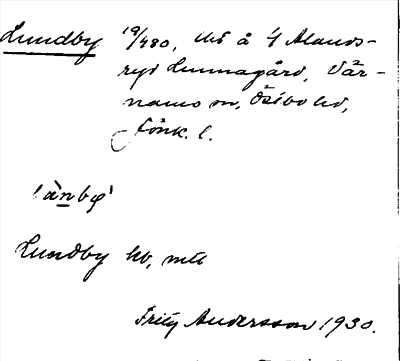 Lundby 19/480, uts å 4 Alands-
ryd Lunnagård, Vär-
namo sn, Östbo hd,
Jönk. l.
Lundby hb, mtl
Fritz Andersson 1930.